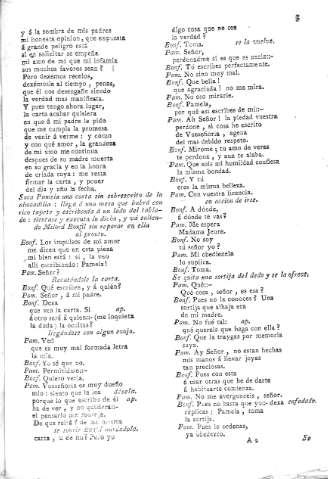 y á la sombra de mis padres
mi honesta opinion, que expuesta
á grande peligro está
al solicitar se empeña
mi amo de mi que mi infamia
sus muchos favores sean?
Pero dexemos recelos,
dexémoslo al tiempo, pense,
que él nos desengañe siendo
la verdad mas manifiesta.
Y pues tengo ahora lugar,
la carta acabar quisiera
en que á mi padre la pido
que me cumpla la promesa
de venir á verme: y como
y con qué amor, la grandeza
de mi amo me continúa
despues de su madre muerta
en su gracia y en la honra
de criada suya: me resta
firmar la carta, y poner
del dia y año la fecha.
Saca Pamela una carta sin sobrescrito de la
almoadilla: llega á una mesa que habrá con
rico tapete y escribanía á un lado del tabla-
do: sientase y executa lo dicho, y vá salien-
do Milord Bonfil sin reparar en ella
al pronto.
Bonf. Los impulsos de mi amor
me dicen que en esta pieza
mi bien está: si, la veo
alli escribiendo: Pamela!
Pam. Señor?
Recatandole la carta.
Bonf. Qué escribes, y á quién?
Pam. Señor, á mi padre.
Bonf. Dexa
que vea la carta. Si ap.
á otro será á quien (me inquieta
la duda) la oculta?
llegándose con algun enojo.
Pam. Ved
que es muy mal formada letra
la mia.
Bonf. Yo sé que no.
Pam. Permitidme
Bonf. Quiero verla.
Pam. Vuseñoría es muy dueño
mio: siento que la lea
porque lo que escribo de él ap.
ha de ver, y no quisiera
carta,
algo cosa que no sea
la verdad?
Bonf. Toma. se la vuelve.
Pam. Señor,
perdonadme si es que os ofendí.
Bonf. Tú escribes perfectamente.
Pam. No sino muy mal.
Bonf. Que bella!
que agraciada! no me mira.
Pam. No oso mirarle.
Bonf. Pamela,
por qué así escribes de mi
Pam. Ah Señor! la piedad vuestra
perdone, si cosa he escrito
de Vuseñoría, agena
del mas debido respeto.
Bonf. Mírome; tu amo de veras
te perdona, y aun te alaba.
Pam. Que solo mi humildad confiesa
la misma bondad.
Bonf. Y tú
eres la misma belleza.
Pam. Con vuestra licencia.
en accion de irse.
Bonf. A dónde,
á dónde te vas?
Pam. Me espera
Madama Jeure.
Bonf. No soy
tú señor yo?
Pam. Mi obediencia
lo suplica.
Bonf. Toma.
Se quita una sortija del dedo y se la ofrece.
Pam. Qué:-
Qué cosa, señor, es esa?
Bonf. Pues no la conoces? Una
sortija que alhaja era
de mi madre.
Pam. No fué tal: ap.
qué quereis que haga con ella?
Bonf. Que la traygas por memoria
suya.
Pam. Ay Señor, no estan hechas
mis manos á llevar joyas
tan preciosas.
Bonf. Pues con esta
ó usar otras que he de darte
á habituarte comienza.
Pam. No me avergonceis, señor.
Bonf. Pues no basta que yo enfadado.
réplicas: Pamela, toma
la sortija.
Pam. Pues lo ordenas,
ya obedezco.
A 2 Se